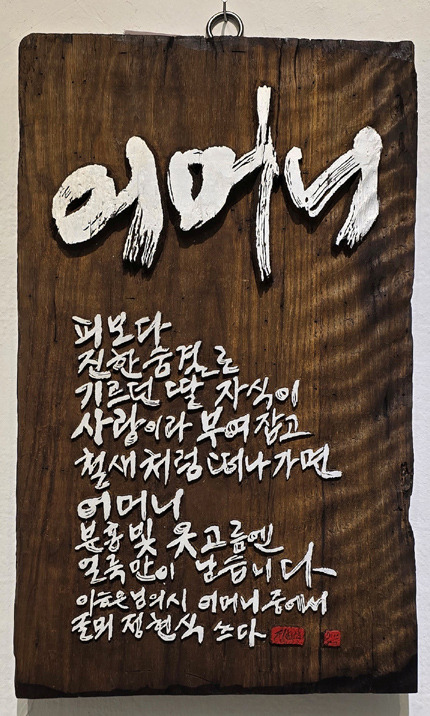 어머니
피보다
진한 숨결로
기르던 딸 자식이
사랑이라 부여잡고
철새처럼 떠나가면
어머니
분홍빛 옷고름엔
얼룩만이 남습니다
님의 시 어머니 중에서
정현식 쓰다